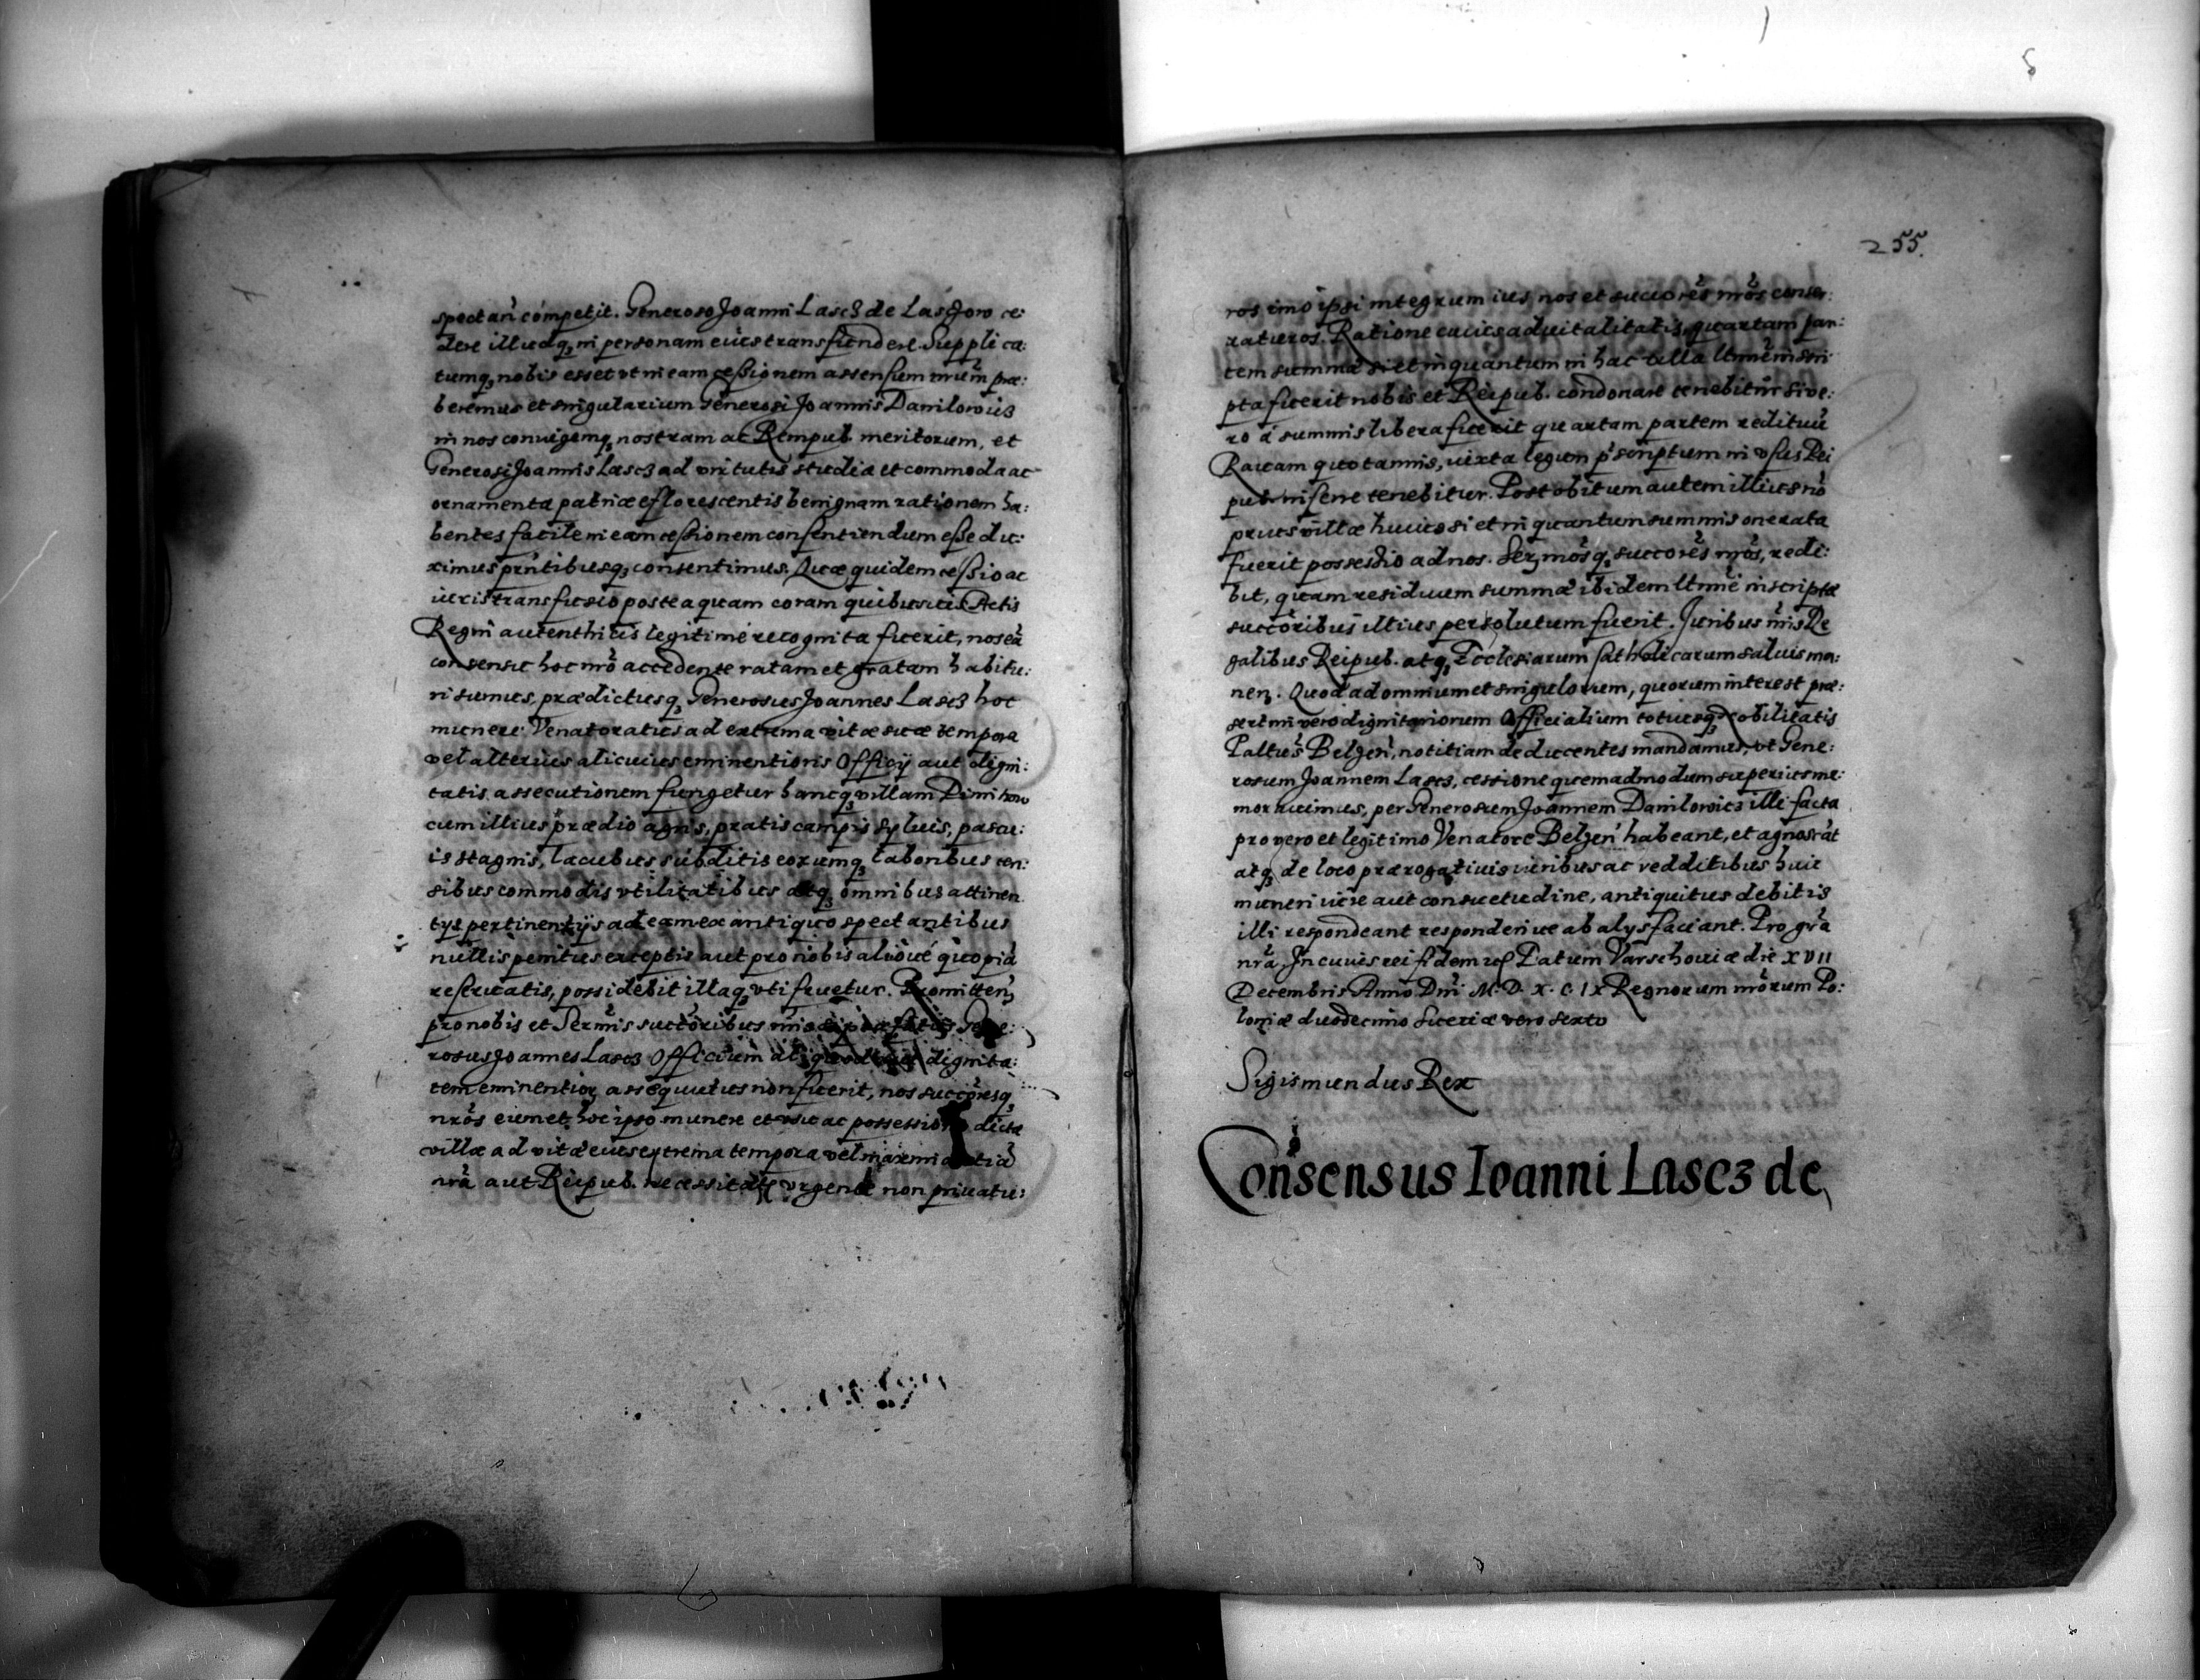 spectan̄ competit. Generoso Joanni Lascȝ de Lasȝow ce:
dere illudqȝ in personam eius transfundere. Supplica:
tumqȝ nobis esset vt in eam cessionem assensum nr̄um præ:
beremus et singularium Generosi Joannis Danilowicȝ
in nos coniugemqȝ nostram ac Rempub. meritorum, et
Generosi Joannis Lascȝ ad virtutis studia et commoda ac
ornamenta patriæ efflorescentis benignam rationem ha:
bentes facile in eam cessionem consentiendum esse dux:
ximus prn̄tibusqȝ consentimus. Quæ quidem cessio ac
iuris transfusio posteaquam coram quibusuis Actis
Regni autenthicis legitimé recognita fuerit, nos eā
consensu hoc nrō accedente ratam et gratam habitu:
ri sumus, prædictusqȝ Generosus Joannes Lascȝ hoc
munere Venatoratus ad extrema vitæ suæ tempora
vel alterius alicuius eminentioris Officij aut digni:
tatis assecutionem fungetur hancqȝ villam Dimitrow
cum illius prædio agris, pratis campis syluis, pascu:
is stagnis, lacubus subditis eorumqȝ laboribus cen:
sibus commodis vtilitatibus atqȝ omnibus attinen
tijs pertinentijs ad eam ex antiquo spectantibus
nullis penitus exceptis aut pro nobis alioué quopiā
reseruatis, possidebit illaqȝ vti fruetur. Promitten̄
pro nobis et Sermīs succōribus nrīs Gene:
rosus Joannes Lascȝ Officium dignita:
tem eminentior assequutus non fuerit, nos succōresqȝ
nrōs eum et hoc ipso munere et vsu ac possessio dictæ
villæ ad vitæ eius extrema tempora vel
nrā aut Reipub. necessitate vrgente non priuatu:
255.
ros imo ipsi integrum ius nos et succorēs nrōs conser:
uaturos. Ratione cuius aduitalitatis, quartam par:
tem summæ si et in quantum in hac villa ltīmē inscri
pta fuerit nobis et Reipub. condonare tenebitur si ve:
ro á summis libera fuerit quartam partem reditūu
Rauam quotannis, iuxta legum p̄scriptum in vsus Rei
pub. inferre tenebitur. Post obitum autem illius nō
prius villæ huius si et in quantum summis onerata
fuerit possessio ad nos. Serȝ, nrōsqȝ succorēs nrōs, redi:
bit, quam residuum summæ ibidem ltīmē inscriptæ
succōribus illius persolutum fuerit. Juribus nrīs Re
galibus Reipub. atqȝ Ecclesiarum Cathōlicarum saluis ma:
nen̄. Quod ad omnium et singulorum, quorum interest præ:
sertim vero dignitariorum Officialium totiusqȝ Nobilitatis
Pałtus Belzen̄, notitiam deducentes mandamus, vt Gene:
rosum Joannem Lascȝ, cessione quemadmodum superius me:
morauimus, per Generosum Joannem Danilowicȝ illi facta
pro vero et legitimo Venatore Belzen̄ habeant, et agnoscāt
atqȝ de loco prærogatiuis iuribus ac redditibus huic
muneri iure aut consuetudine, antiquitus debitis
illi respondeant responderi ue ab alijs faciant. Pro grā
nrā. In cuius rei fidem Datum Varschouiæ die XVII
Decembris Anno Dnī M. D. X. C. IX Regnorum nrōrum Po:
loniæ duodecimo Sueciæ vero sexto
Sigismundus Rex
Consensus Ioanni Lascȝ de